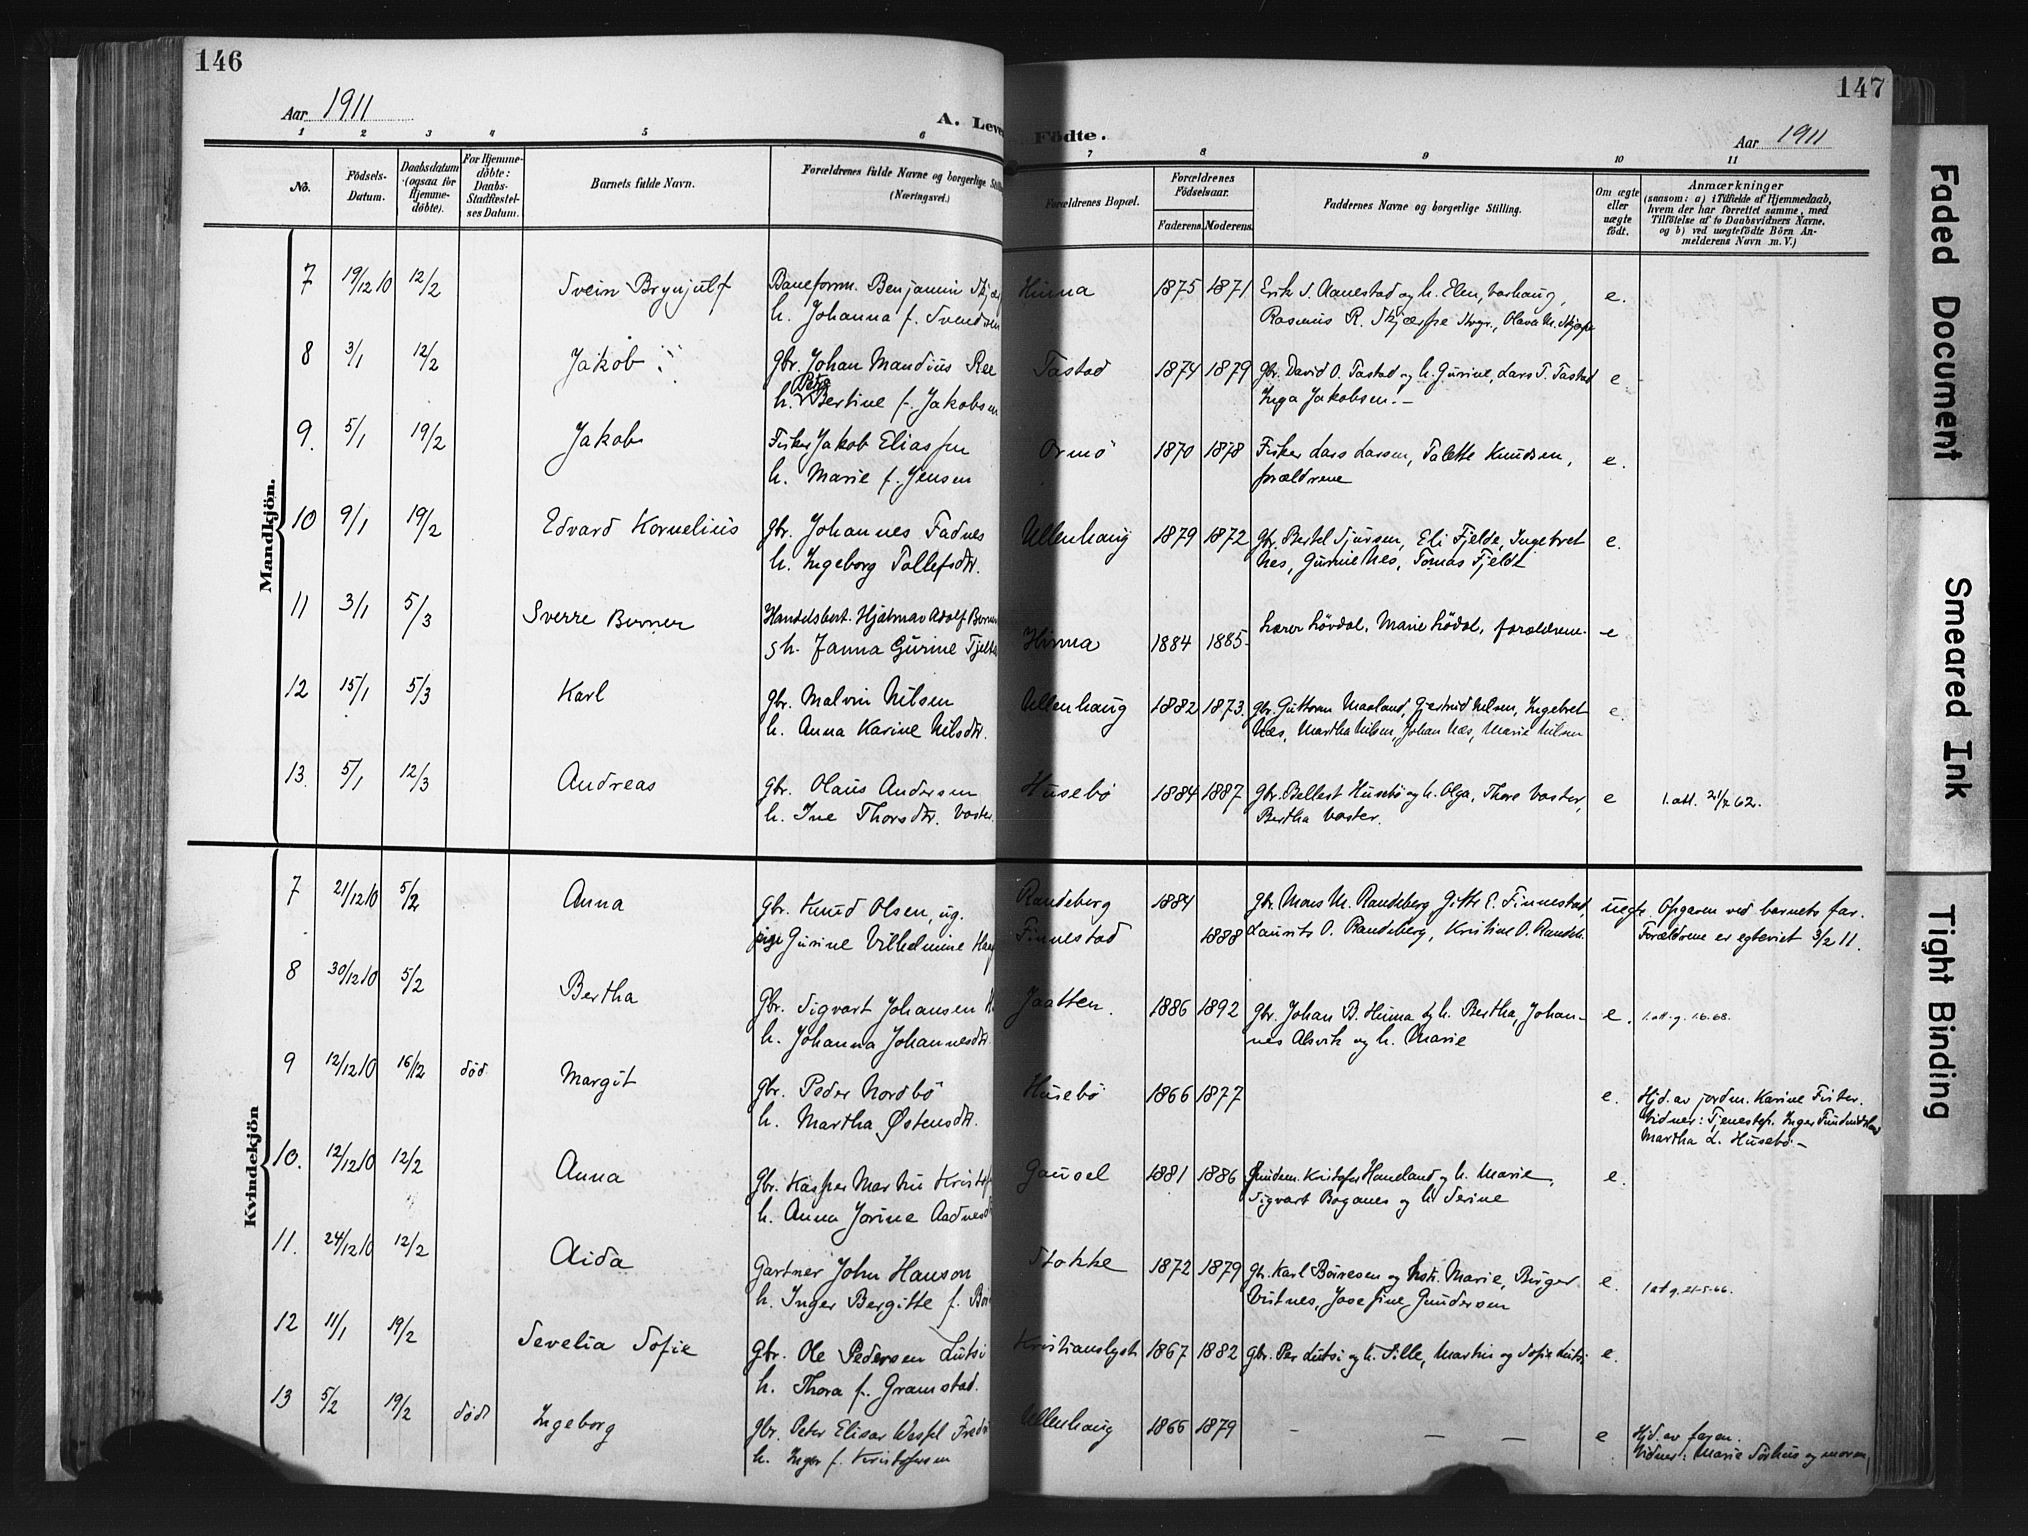 146
Aar 1911
A. Leve
1 2 3 4 5 6
No.
Födsels-
Datum.
Daabsdatum
(ogsaa for
Hjemme-
döbte).
For Hjemme-
döbte:
Daabs-
Stadfæstel-
ses Datum.
Barnets fulde Navn.
Forældrenes fulde Navne og borgerlige Still
(Næringsvei.)
Mandkjön.
7 19/12 10 12/2 Svein Brynjulf Baneform. Benjamin Skjær
h. Johanna f. Svendsen
8 3/1 12/2 Jakob gbr. Johan Mandius Ree
Petra
h. Bertine f. Jakobsen
9. 5/1 19/2 Jakob Fisker Jakob Eliassen
h. Marie f. Jensen
10 9/1 19/2 Edvard Kornelius gbr. Johannes Fadnes
h. Ingeborg Tollefsdtr.
11 3/1 5/3 Sverre Berner Handelsbest. Hjalmar Adolf Berner
h. Janna Gurine Fjelde
12 15/1 5/3 Karl gbr. Malvin Nilsen
h. Anna Karine Nilsdtr.
13. 5/1 12/3 Andreas gbr. Olaus Andersen
h. Ine Thorsdtr. Vaster
Kvindekjön
7 21/12 10 5/2 Anna gbr. Knud Olsen, ug.
pige Gurine Vilhelmine
8 30/12 10 5/2 Bertha gbr. Sigvart Johansen
h. Johanna Johannesdtr.
9 12/12 10 16/12 död Margit gbr. Peder Nordbö
h. Martha Østensdtr.
10. 12/12 10 12/2 Anna gbr. Kasper Martin Kristof
h. Anna Jorine Aadnesd
11. 24/12 10 12/2 Aida Gartner John Hanson
h. Inger Bergitte f.
12 11/1 19/2 Sevelia Sofie gbr. Ole Pedersen Lutsi
h. Thora f. Gramstad.
13 5/2 19/2 död Ingeborg gbr. Peter Elisar
h. Inger f. Kristofersen
147
Födte.
Aar 1911
7 8 9 10 11
Forældrenes Bopæl.
Forældrenes
Födselsaar.
Faderens. Moderens.
Faddernes Navne og borgerlige Stilling.
Om ægte
eller
uægte
födt.
Anmærkninger
(saasom: a) i Tilfælde af Hjemmedaab,
hvem der har forrettet samme, med
Tilföielse af to Daabsvidners Navne,
og b) ved uægtefödte Börn An-
melderens Navn m. V.)
Hinna 1875 1871 Erik S. Aanestad og h. Elen, Varhaug, e.
Rasmus R. Skjærpe Stvgr., Olava M. Skjærpe
Tastad 1874 1879 gbr. David O. Tastad og h. Gurine, Lars T. Tastad e
Inga Jakobsen. -
Ormö 1870 1878 Fisker Lars Larsen, Talette Knudsen, e.
forældrene
Ullenhaug 1879 1872 gbr. Bertel Sjursen, Eli Fjelde, Ingebret e.
Nes, Gurine Nes, Tomas Fjelde
Hinna 1884 1885 Lærer Lövdal, Marie Lödal, forældrene. e
Ullenhaug 1882 1873. gbr. Guttorm Maaland, Gjertrud Nilsen, Ingebret e.
Næs, Martha Nilsen, Johan Næs, Marie Nilsen
Husebö 1884 1887 gbr. Bellest Husebö og h. Olga, Thore Vaster, e 1. att. 21/2 62.
Bertha Vaster.
Randeberg 1884 gbr. Mons M. Randeberg Gitte E. Finnestad, uegte. Opgaven ved barnets far.
Finnestad 1888 Laurits O. Randeberg, Kristine O. Randeb. Forældrene er egteviet 3/2 11.
Jaatten. 1886 1892 gbr. Johan B. Hinna og h. Bertha, Johan- e. 1. att. g. 1.6.68.
nes Alsvik og h. Marie
Husebö 1866 1877 e. Hjd. av jordm. Karine Fister.
Vidner: Tjenestep. Inger
Martha L. Husebö. -
Gausel 1881 1886 Kristofer Haneland og h. Marie, e.
Sigvart Boganes og h. Serine
Stokke 1872 1879 gbr. Karl Börresen og hst. Marie, Birger e. 1 att g. 21-5-66.
Vistnes, Josefine Gundersen
Kristianslyst 1867 1882 gbr. Per Lutsi og h. Sille, Martin og Sofie Lutsi e.
Ullenhaug 1866 1879 - - - e Hjd. av faren.
Vidner: Marie Sörhus og moren
Faded Document
Smeared Ink
Tight Binding